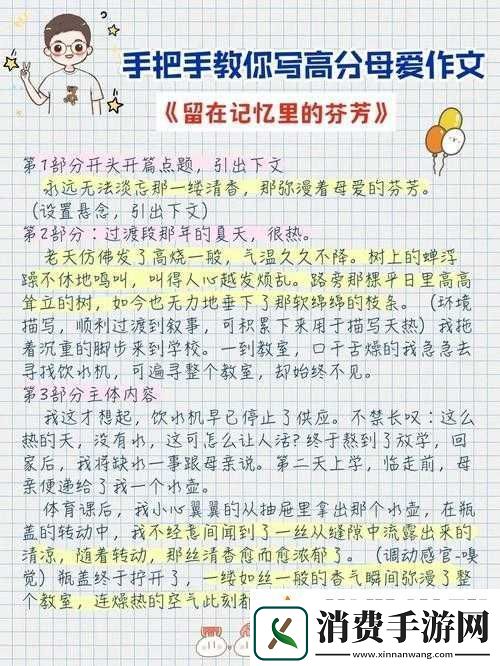 手把手教你写高分母爱作文
《留在记忆里的芬芳》
第1部分开头开篇点题，引出下文
永远无法淡忘那一缕清香，那弥漫着母爱的芬芳。
（设置悬念，引出下文）
第2部分：过渡段那年的夏天，很热。
老天仿佛发了高烧一般，气温久久不降。树上的蝉浮
躁不休地鸣叫，叫得人心越发烦乱。路旁那棵平日里高高
耸立的树，如今也无力地垂下了那软绵绵的枝条。（环境
描写，顺利过渡到叙事，可积累下来用于描写天热）我拖
着沉重的脚步来到学校。一到教室，口干舌燥的我急急去
寻找饮水机，可遍寻整个教室，却始终不见。
第3部分主体内容
我这才想起，饮水机早已停止了供应。不禁长叹：这么
热的天，没有水，这可怎么让人活？终于熬到了放学，回
家后，我将缺水一事跟母亲说。第二天上学，临走前，母
亲便递给了我一个水壶。
体育课后，我小心翼翼的从抽屉里拿出那个水壶，在瓶
盖的转动中，我不经意间闻到了一丝从缝隙中流露出来的
清凉，随着转动，那丝清香愈而愈浓郁了。（调动感官-嗅
觉）瓶盖终于拧开了，一缕如丝一般的香气瞬间弥漫了整
个教室，连燥热的空气此刻都
消费手游网
www.xinnanwang.com